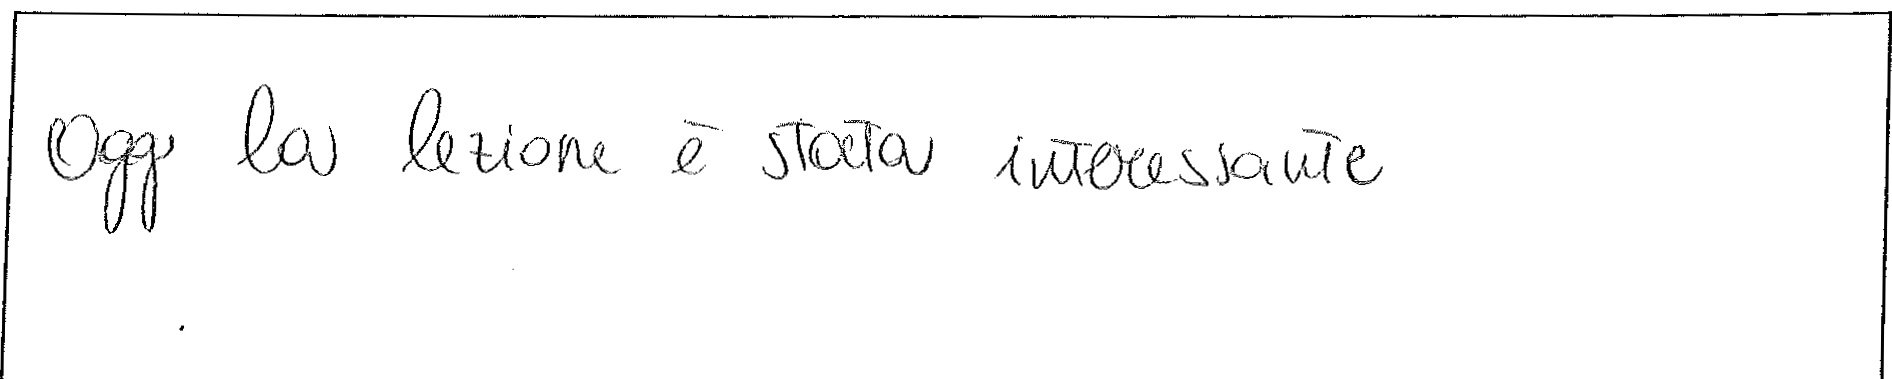 Oggi la lezione è stata interessante